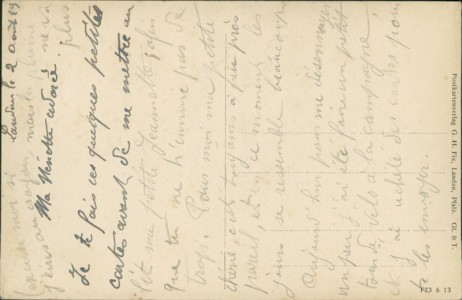 Landau le 2 Août 19
Ma Nénette adorée,
Je te fais ces quelques petites
cartes avant de me mettre au
lit ma petite Jeannette, afin
que tu ne t'ennuie pas de
trop. Pour moi ma petite
chérie c'est toujours à peu près
pareil, et en ce moment les
jours se ressemble beaucoup.
Aujourd'hui pour me désennuyer
un peu j'ai été faire un petit
tour de vélo à la campagne,
et j'ai acheté des cartes pour
te les envoyer.
Excuse moi si
j'écris au crayon, mais la plume
ne va plus
Postkartenverlag G. H. Fix, Landau, Pfalz. Gl. & T.
223 6 13